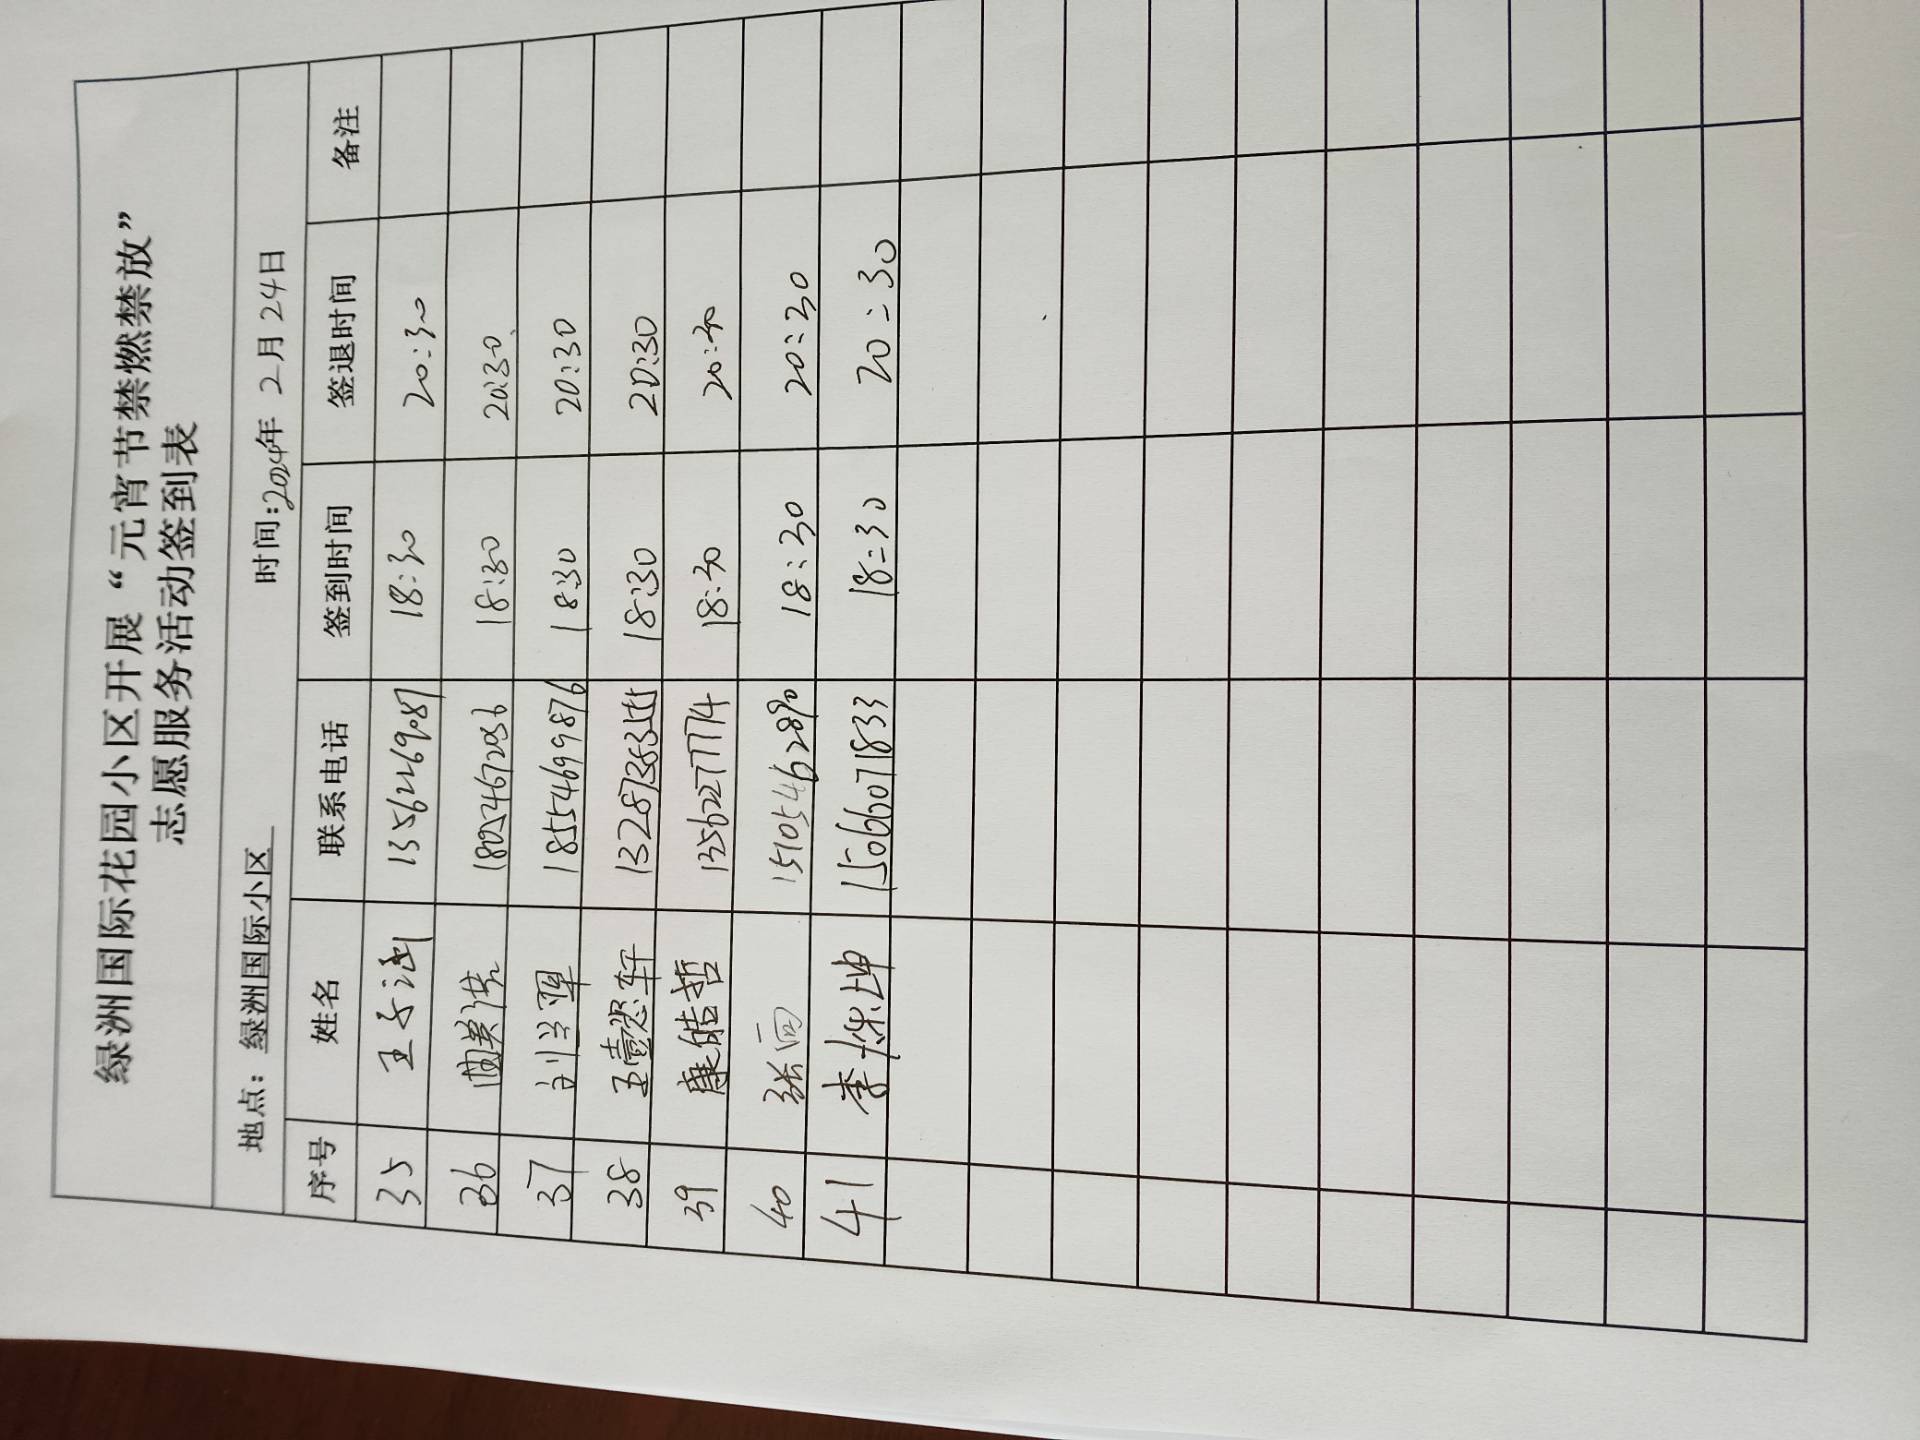 绿洲国际花园小区开展“元宵节禁燃禁放”
志愿服务活动签到表
地点：绿洲国际小区 时间:2024年 2月24日
序号 姓名 联系电话 签到时间 签退时间 备注
35 王子涵 13562269087 18:30 20:30
36 18:30 20:30
37 18554699876 18:30 20:30
38 王懿轩 18:30 20:30
39 康皓哲 13562277774 18:30 20:30
40 张雨 15105462890 18:30 20:30
41 李烁坤 15666071833 18:30 20:30